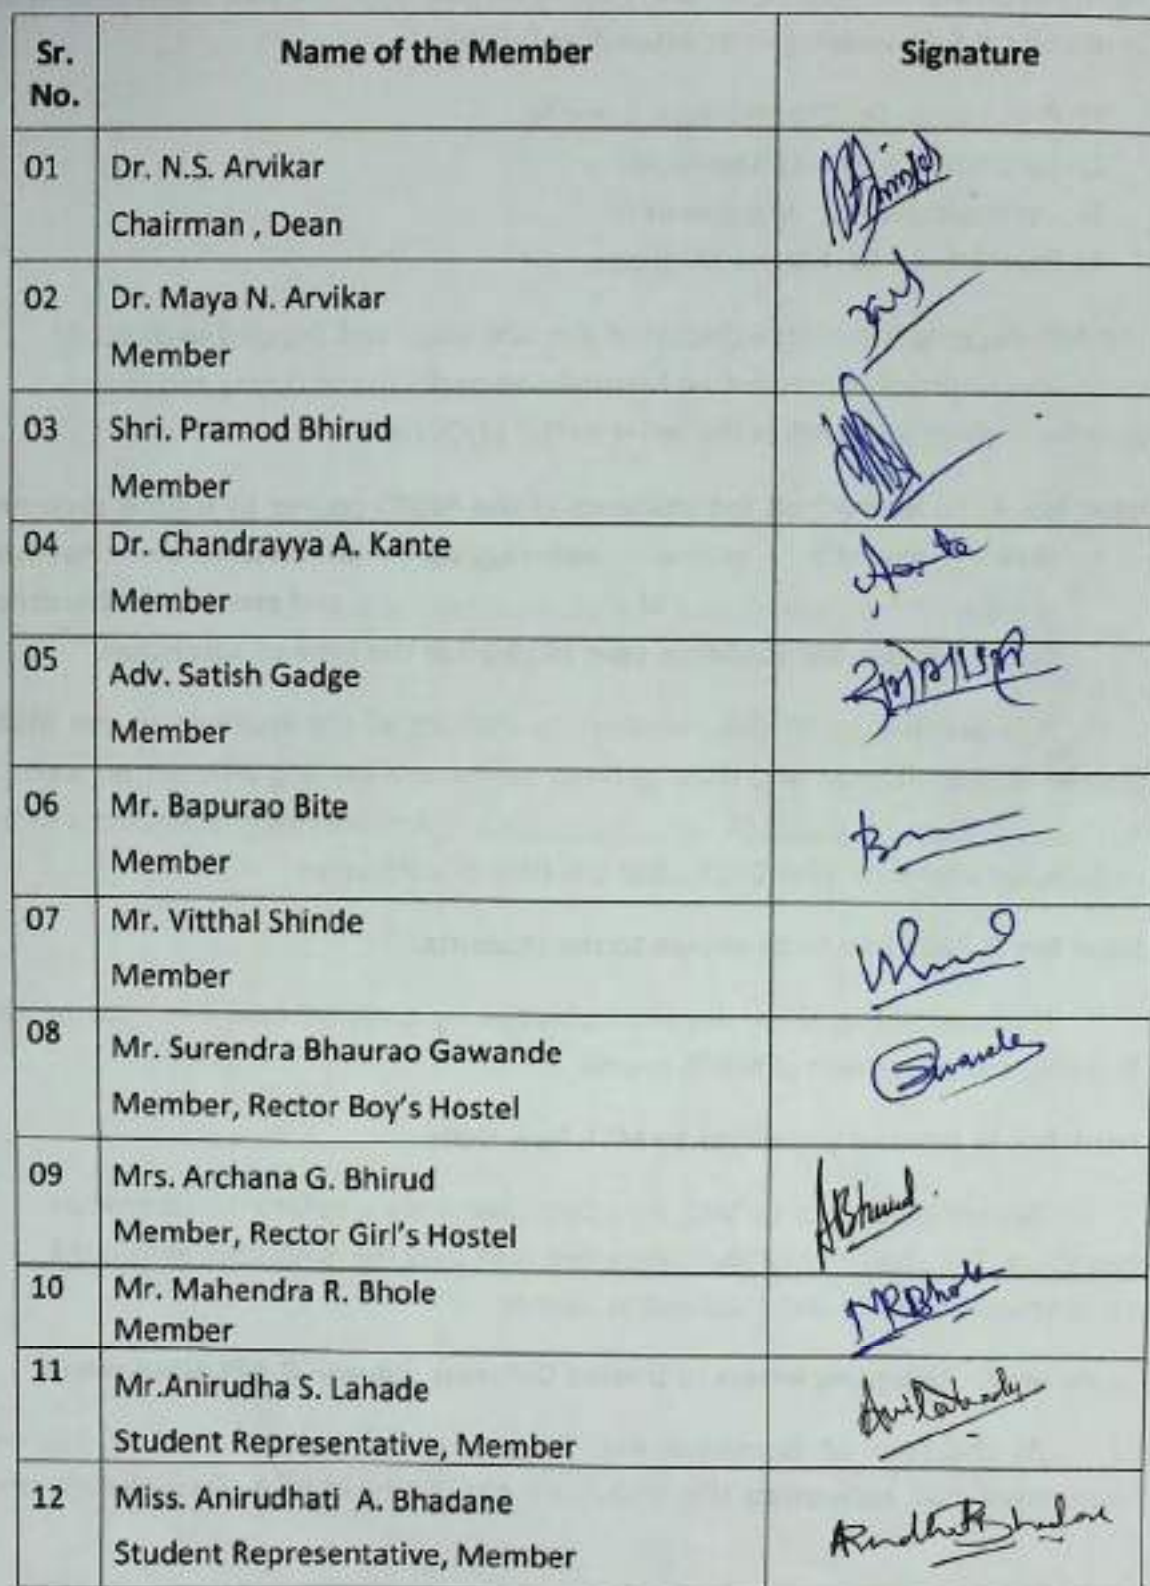 Sr. No.
Name of the Member
Signature
01
Dr. N.S. Arvikar
Chairman , Dean
02
Dr. Maya N. Arvikar
Member
03
Shri. Pramod Bhirud
Member
04
Dr. Chandrayya A. Kante
Member
05
Adv. Satish Gadge
Member
06
Mr. Bapurao Bite
Member
07
Mr. Vitthal Shinde
Member
08
Mr. Surendra Bhaurao Gawande
Member, Rector Boy's Hostel
09
Mrs. Archana G. Bhirud
Member, Rector Girl's Hostel
ABhirud.
10
Mr. Mahendra R. Bhole
Member
MRBhole
11
Mr.Anirudha S. Lahade
Student Representative, Member
12
Miss. Anirudhati A. Bhadane
Student Representative, Member